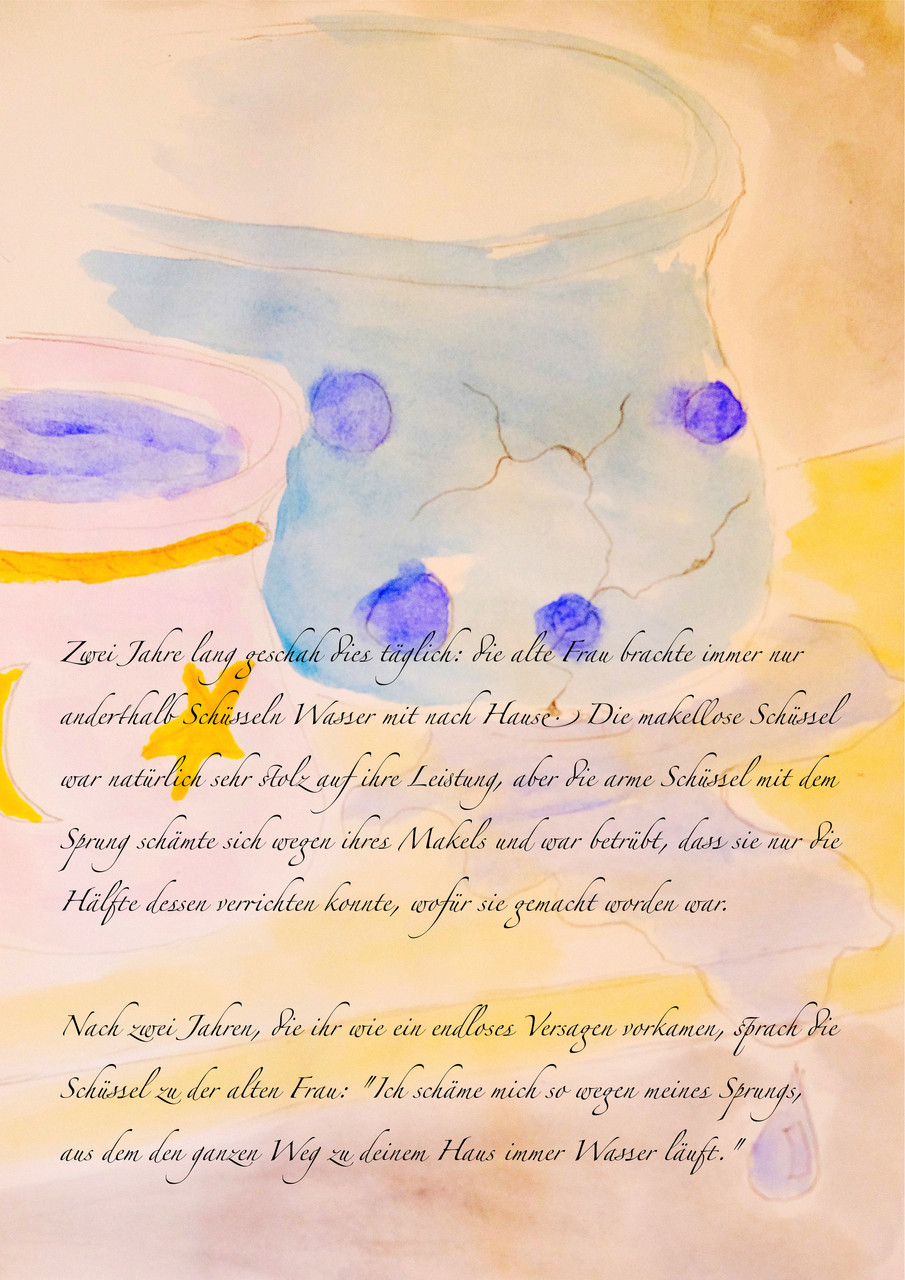 Zwei Jahre lang geschah dies täglich: die alte Frau brachte immer nur
anderthalb Schüsseln Wasser mit nach Hause. Die makellose Schüssel
war natürlich sehr stolz auf ihre Leistung, aber die arme Schüssel mit dem
Sprung schämte sich wegen ihres Makels und war betrübt, dass sie nur die
Hälfte dessen verrichten konnte, wofür sie gemacht worden war.
Nach zwei Jahren, die ihr wie ein endloses Versagen vorkamen, sprach die
Schüssel zu der alten Frau: "Ich schäme mich so wegen meines Sprungs,
aus dem den ganzen Weg zu deinem Haus immer Wasser läuft."